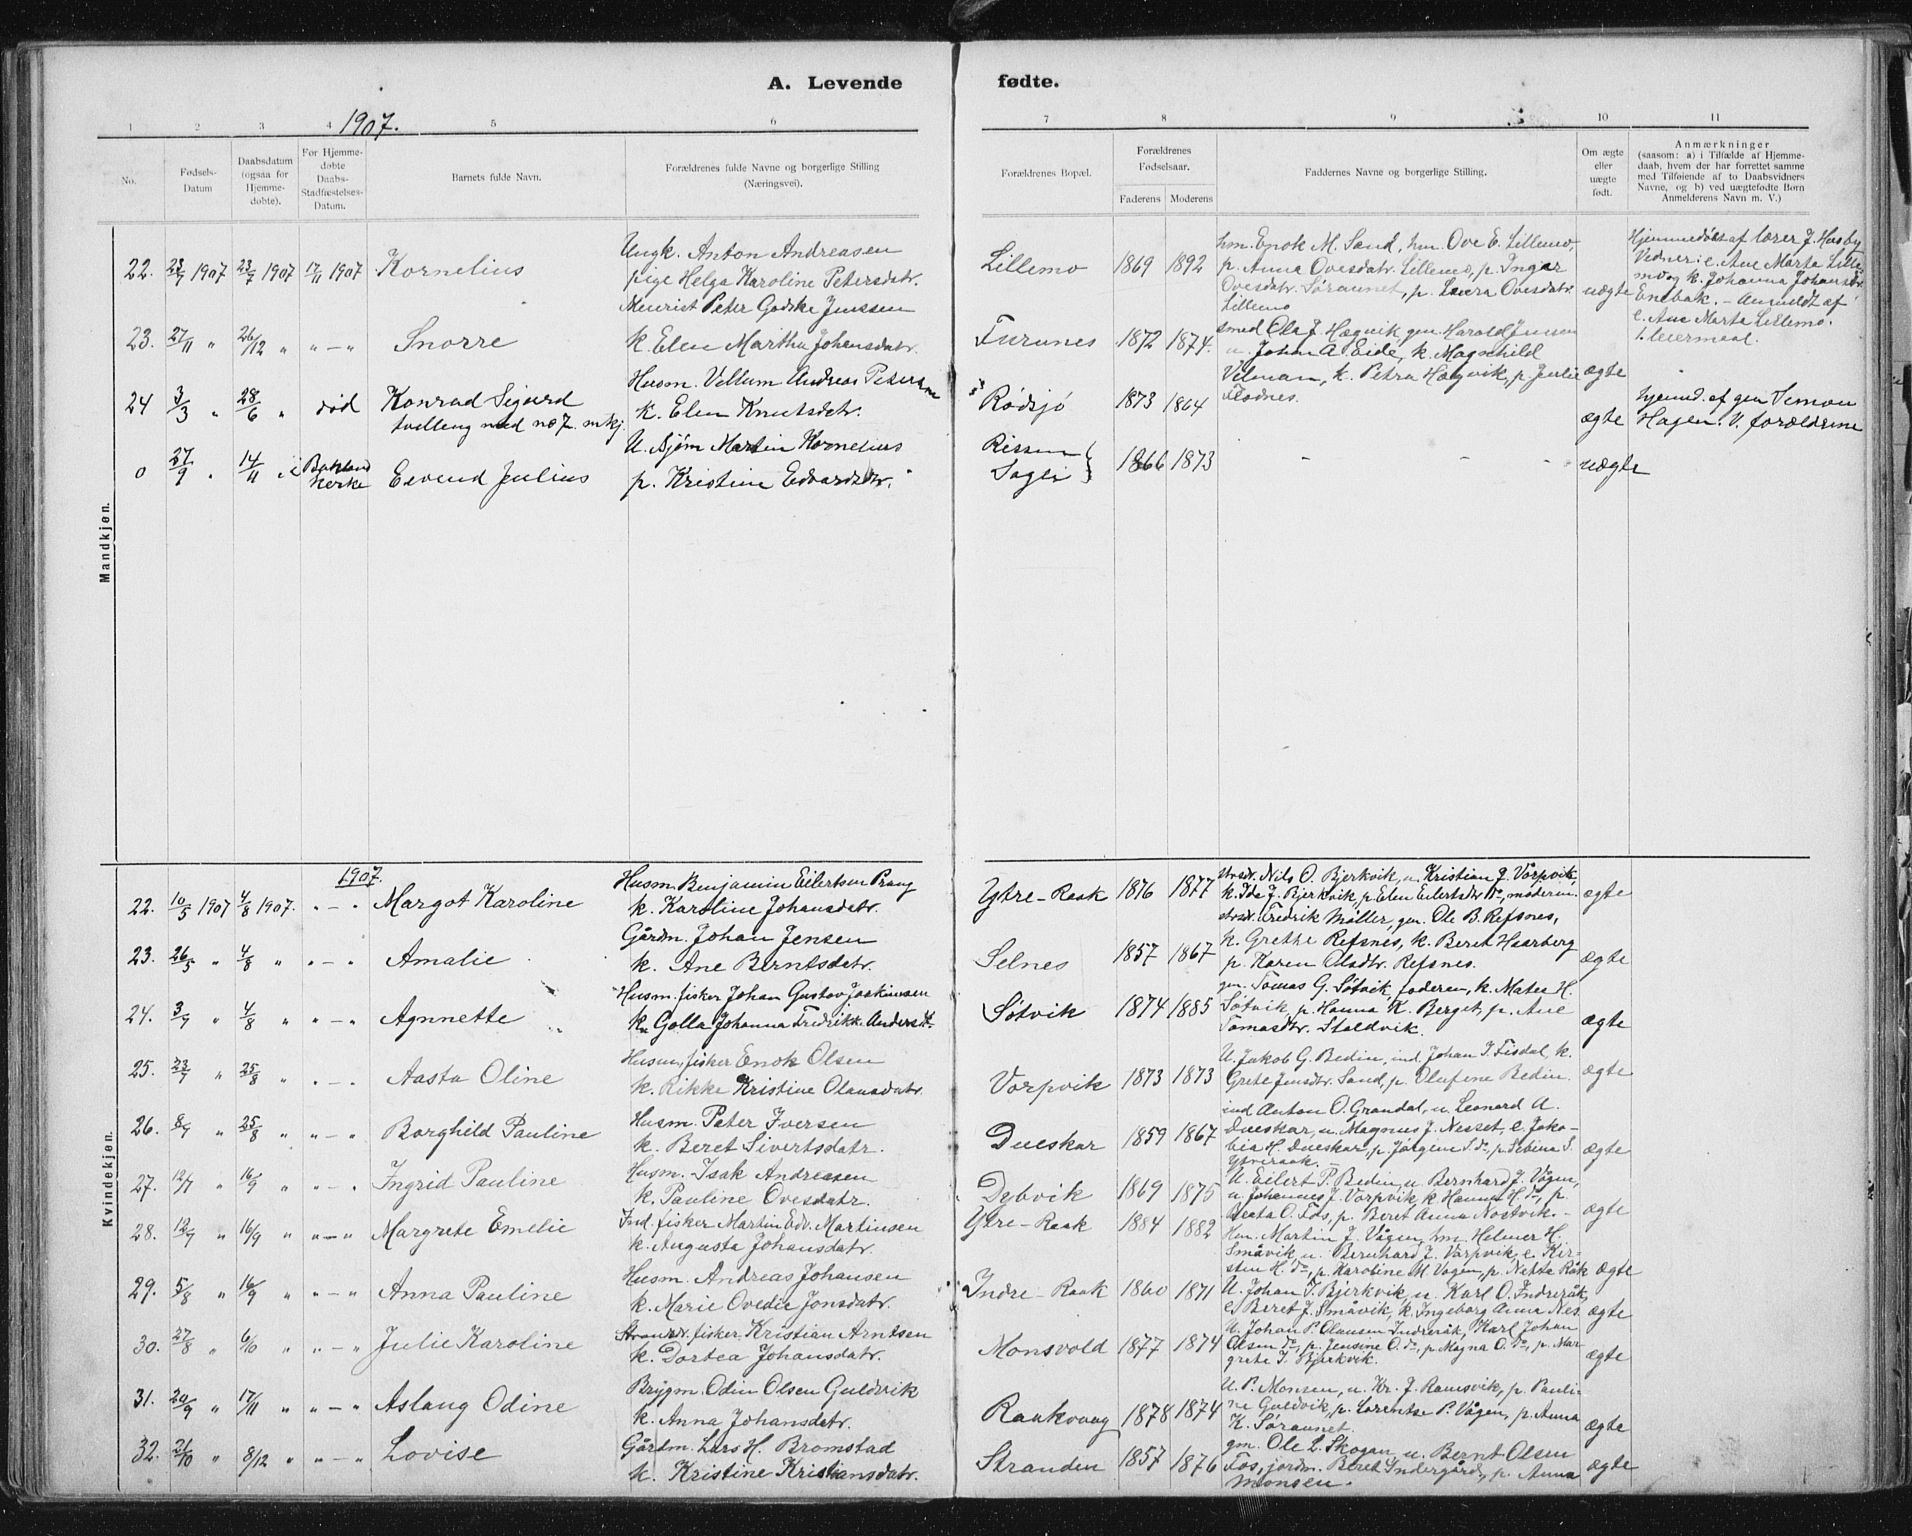 A. Levende fødte.
1907.
1 2 3 4 5 6 7 8 9 10 11
No.
Fødsels-
Datum
Daabsdatum
(ogsaa for
Hjemme-
døbte).
For Hjemme-
døbte
Daabs-
Stadfæstelses-
Datum.
Barnets fulde Navn.
Forældrenes fulde Navne og borgerlige Stilling
(Næringsvei).
Forældrenes Bopæl.
Forældrenes
Fødselsaar.
Faderens Moderens
Faddernes Navne og borgerlige Stilling.
Om ægte
eller
uægte
født.
Anmærkninger
(saasom: a) i Tilfælde af Hjemme-
daab, hvem der har forrettet samme
med Tilføiende af to Daabsvidners
Navne, og b) ved uægtefødte Børn
Anmelderens Navn m. V.)
Mandkjøn.
22. 23/7 1907 23/7 1907 17/11 1907 Kornelius
Ungk. Anton Andreasen
pige Helga Karoline Petersdatr.
Lillemo 1869 1892
hm. Enok M. Sand, hm. Ove E. Lillemo,
p. Anna Ovesdatr. Lillemo, p. Ingar
Ovesdatr. Søraunet, p. Laura Ovesdatr.
Lillemo
uægte
Hjemmedøbt af lærer J. Husby
Vidner: e. Ane Marta Lille
mo og k. Johanna Johansdr.
Enebak. - Anmeldt af
e. Ane Marta Lillemo.
1. leiermaal.
23. 27/11 " 26/12 " " - " Snorre
Meierist Peter Godske Jenssen
k. Elen Martha Johansdatr.
Furunes 1872 1874.
smed Ola J. Hægvik, gm. Harald Jensen
u. Johan A. Eide, k. Magnhild
Vilman, k. Petra Hægvik, p. Julie
Flodnes.
ægte
24 3/3 " 28/6 " død Konrad Sigurd
tvilling med no 7. mkj.
Husm. Vellum Andreas Petersen
k. Elen Knutsdatr.
Rødsjø 1873 1864
ægte
hjemmd. af gm Simon
Hagen. V. forældrene
0 27/9 " 14/11 " i Bakland
kirke Eivind Julius
U. Asjøm Martin Kornelius
p. Kristine Edvardsdtr.
Rissen
Sagli } 1866 1873 - - - uægte
Kvindekjøn.
1907.
22. 10/5 1907 4/8 1907. " - " Margot Karoline
Husm. Benjamin Eilertsen Prang
k. Karoline Johansdatr.
Ytre-Raak 1876 1877
strsdr. Nils O. Bjerkvik, u. Kristian J. Vårpvik,
k. Ida J. Bjerkvik, p. Elen Eilertsdtr do, moderen
ægte
23. 26/5 " 4/8 " " - " Amalie
Gårdm. Johan Jensen
k. Ane Berntsdatr.
Selnes 1857 1867
strsdr. Fredrik Møller, gm. Ole B. Refsnes,
k. Grethe Refsnes, k. Beret Haarberg
p. Karen Olsdtr. Refsnes.
ægte
24. 3/7 " 4/8 " " - " Agnnette
Husm. fisker Johan Gustav Joakimsen
k. Golla Johanna Fredrikk. Andersdt.
Søtvik 1874 1885
gm. Tomas G. Søtvik, faderen, k. Mater H.
Søtvik, p. Hanna K. Berget, p. Ane
Tomasdtr. Staldvik.
ægte
25. 23/7 " 25/8 " " - " Aasta Oline
Husm. fisker Enok Olsen
k. Rikke Kristine Olausdatr.
Vorpvik 1873 1873
U. Jakob G. Bedin, ind. Johan I. Fisdal, k.
Grete Jensdtr. Sand, p. Olufine Bedin.
ægte
26. 8/7 " 25/8 " " - " Borghild Pauline
Husm. Peter Iversen
k. Beret Sivertsdatr.
Dueskar 1859 1867
ind Anton O. Grandal, u. Leonard A.
Dueskar, u. Magnus J. Nesset, e. Jako-
bia H. Dueskar, p. Jørgine S. do, p. Sebina S.
Ytreraak.
ægte
27. 12/7 " 16/9 " " - " Ingrid Pauline
Husm. Isak Andreasen
k. Pauline Ovesdatr.
Dybvik 1869 1875
U. Eilert P. Bedin, u. Bernhard J. Vågen,
u. Johannes J. Vorpvik, k. Hanna H. do, p.
Beata O. Fos, p. Beret Anna Nostvik. -
ægte
28. 12/9 " 16/9 " " - " Margrete Emelie
Ind. fisker Martin Edv. Martinsen
k. Augusta Johansdatr.
Ytre-Raak 1884 1882
Hm. Martin J. Vågen, hm. Helmer H.
Småvik, u. Bernhard J. Varpvik, e. Kir-
sten H. do, p. Karoline M. Vågen, p. Netta Råk
ægte
29. 5/8 " 16/9 " " - " Anna Pauline
Husm. Andreas Johansen
k. Marie Ovedie Jonsdatr.
Indre-Raak 1860 1871
U. Johan T. Bjerkvik, u. Karl O. Indreråk,
e. Beret J. Småvik, k. Ingeborg Anna Nes.
ægte
30. 27/8 " 6/10 " " - " Julie Karoline
Strandsr. fisker, Kristian Arntsen
k. Dortea Johansdatr.
Monsvold 1877 1874
U. Johan P. Olausen Indreråk, Karl Johan
Olsen do, p. Jensine O. do, p. Magna O. do, p. Mar-
grete T. Bjerkvik.
ægte
31. 20/9 " 17/11 " " - " Aslaug Odine
Brygm. Odin Olsen Guldvik
k. Anna Johansdatr.
Raakvaag 1878 1874
U. P. Monsen, u. Kr. J. Ramsvik, p. Pauli-
ne Guldvik, p. Lorentse P. Vågen, p. Anna
K. Søraunet.
ægte
32. 21/10 " 8/12 " " - " Lovise
Gårdm. Lars H. Bromstad
k. Kristine Kristiansdatr.
Stranden 1857 1876
gm. Ole L. Skogan, u. Bernt Olsen
Fos, jordm. Beret Indergård, p. Anna
Monsen.
ægte